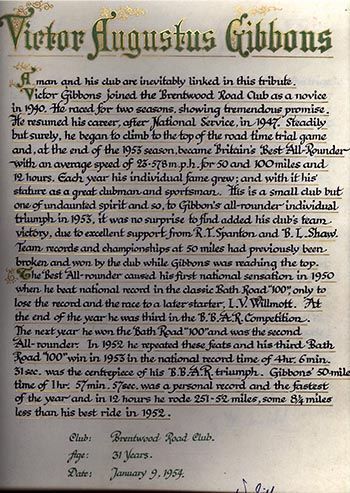 Victor Augustus Gibbons
A man and his club are inevitably linked in this tribute.
Victor Gibbons joined the Brentwood Road Club as a novice
in 1940. He raced for two seasons, showing tremendous promise.
He resumed his career, after National Service, in 1947. Steadily
but surely, he began to climb to the top of the road time trial game
and, at the end of the 1953 season, became Britain's Best All-Rounder
with an average speed of 23·578 m.p.h. for 50 and 100 miles and
12 hours. Each year his individual fame grew; and with it his
stature as a great clubman and sportsman. This is a small club but
one of undaunted spirit and so, to Gibbon's all-rounder individual
triumph in 1953, it was no surprise to find added his club's team
victory, due to excellent support from R.T. Spanton and B.L. Shaw.
Team records and championships at 50 miles had previously been
broken and won by the club while Gibbons was reaching the top.
The Best All-rounder caused his first national sensation in 1950
when he beat national record in the classic Bath Road "100", only to
lose the record and the race to a later starter, L.V. Willmott. At
the end of the year he was third in the B.B.A.R. Competition.
The next year he won the Bath Road "100" and was the second
All-rounder. In 1952 he repeated these feats and his third Bath
Road "100" win in 1953 in the national record time of 4hr. 6min.
31sec. was the centrepiece of his B.B.A.R. triumph. Gibbons' 50-mile
time of 1hr. 57min. 57sec. was a personal record and the fastest
of the year and in 12 hours he rode 251·52 miles, some 8¼ miles
less than his best ride in 1952.
Club: Brentwood Road Club.
Age: 31 Years.
Date: January 9, 1954.